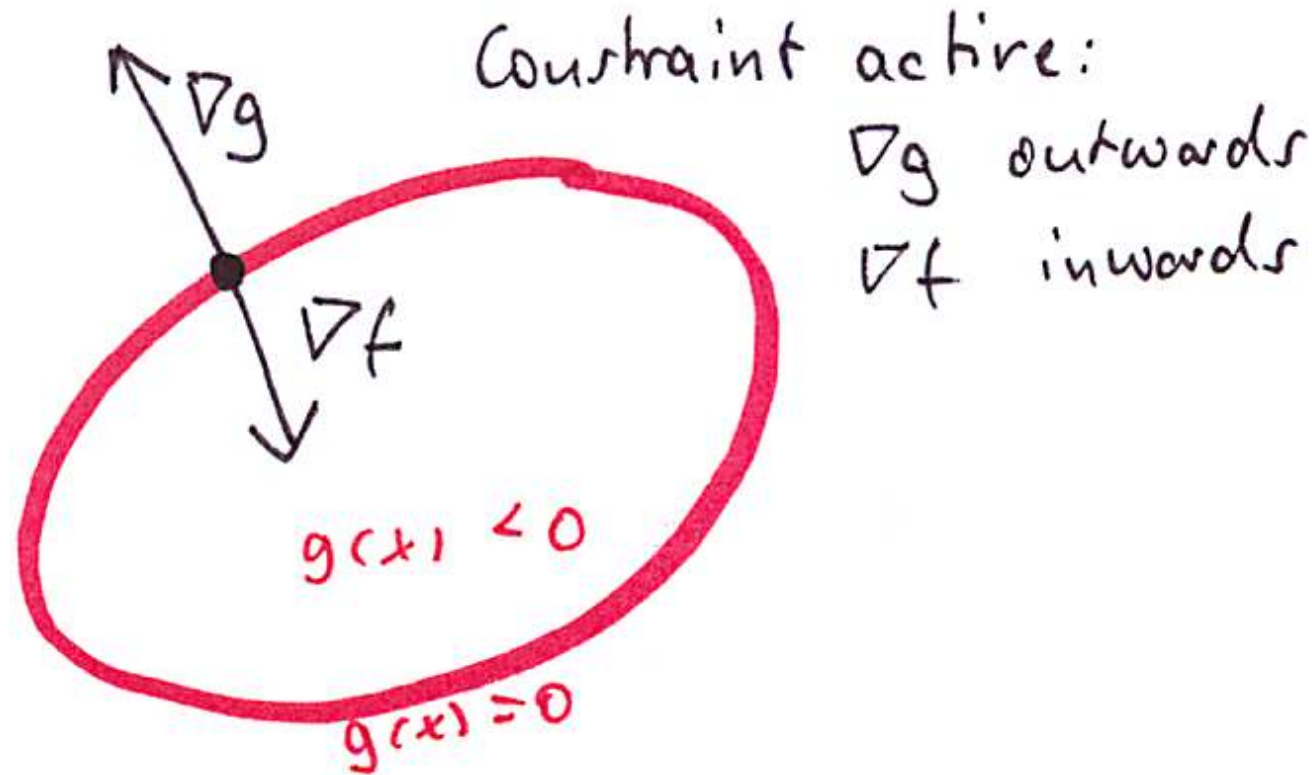 Constraint active:
∇g
∇g outwards
∇f inwards
∇f
g(x) < 0
g(x) = 0